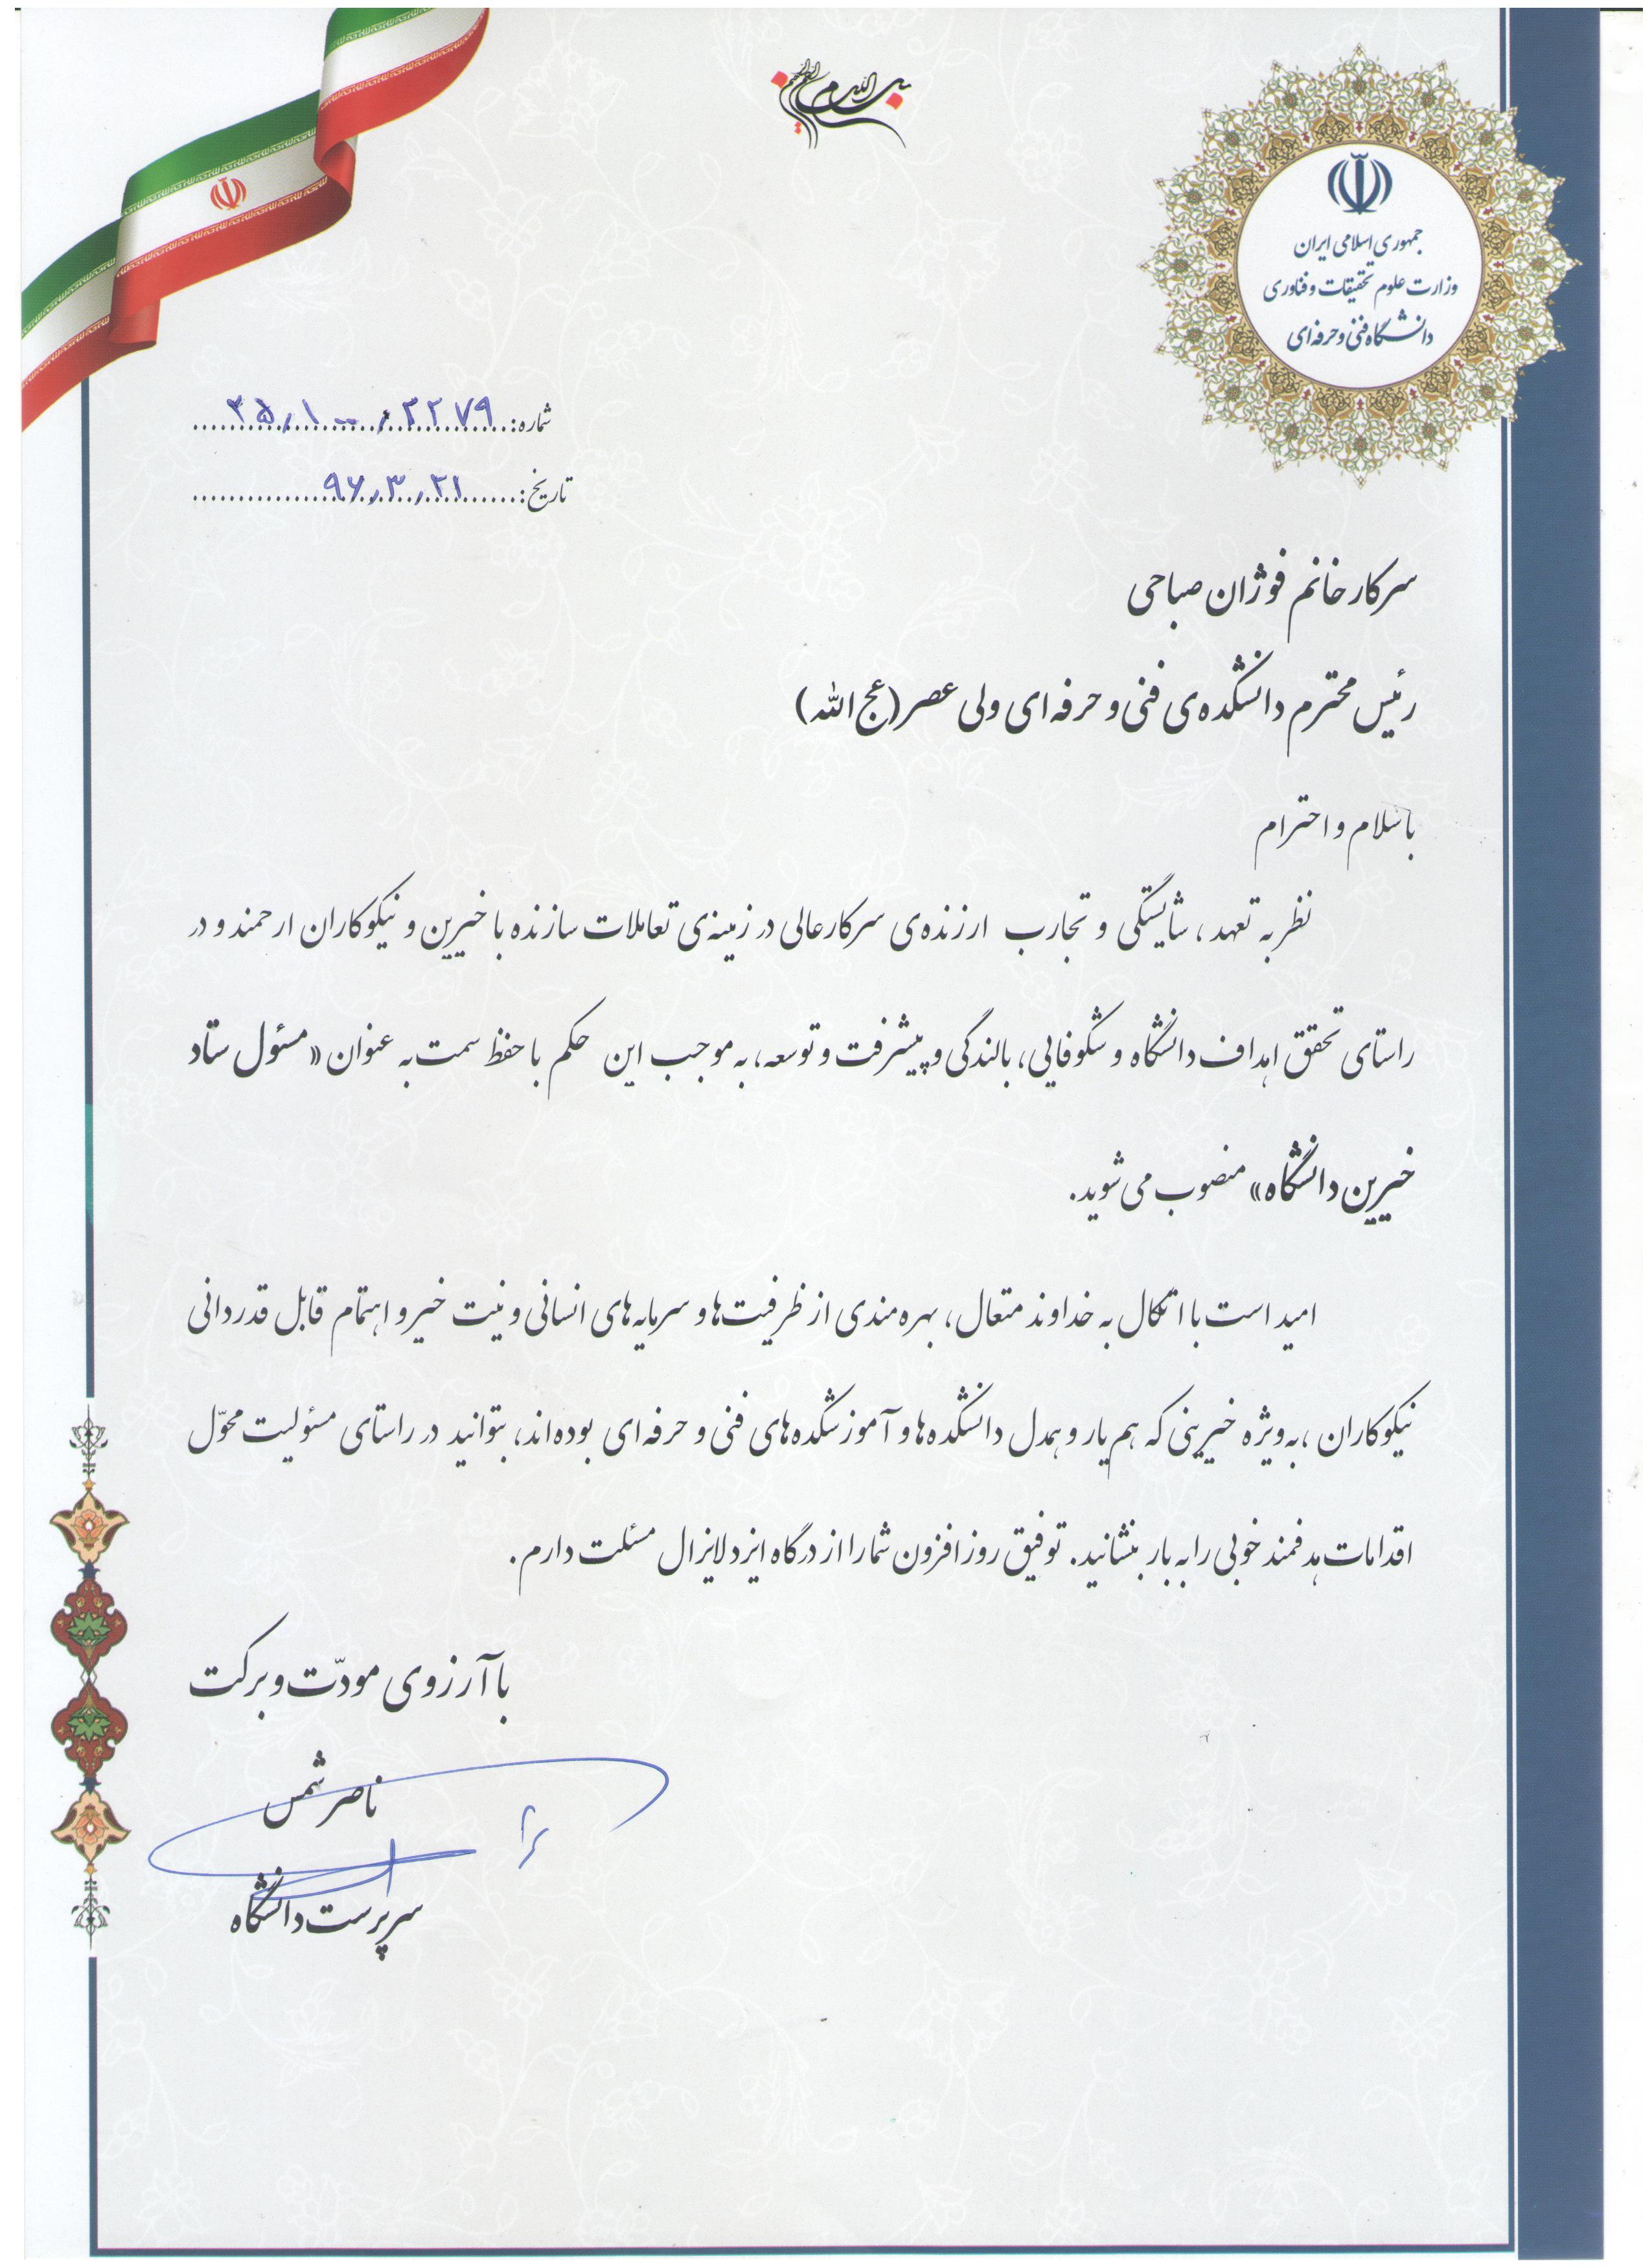 بسم الله الرحمن الرحیم
جمهوری اسلامی ایران
وزارت علوم تحقیقات و فناوری
دانشگاه فنی و حرفه‌ای
شماره: ۲۵٫۱۰۰٫۲۲۷۹
تاریخ: ۹۶٫۳٫۲۱
سرکار خانم فوژان صباحی
رئیس محترم دانشکده‌ی فنی و حرفه ای ولی عصر (عج الله)
با سلام و احترام
نظر به تعهد، شایستگی و تجارب ارزنده‌ی سرکارعالی در زمینه‌ی تعاملات سازنده با خیرین و نیکوکاران ارجمند و در
راستای تحقق اهداف دانشگاه و شکوفایی، بالندگی و پیشرفت و توسعه، به موجب این حکم با حفظ سمت به عنوان «مسئول ستاد
خیرین دانشگاه» منصوب می‌شوید.
امید است با اتکال به خداوند متعال، بهره‌مندی از ظرفیت‌ها و سرمایه‌های انسانی و نیت خیر و اهتمام قابل قدردانی
نیکوکاران، به‌ویژه خیرینی که هم‌یار و همدل دانشکده‌ها و آموزشکده‌های فنی و حرفه‌ای بوده‌اند، بتوانید در راستای مسئولیت محوّل
اقدامات هدفمند خوبی را به بار بنشانید. توفیق روزافزون شما را از درگاه ایزد لایزال مسئلت دارم.
با آرزوی مودّت و برکت
ناصر شمس
سرپرست دانشگاه